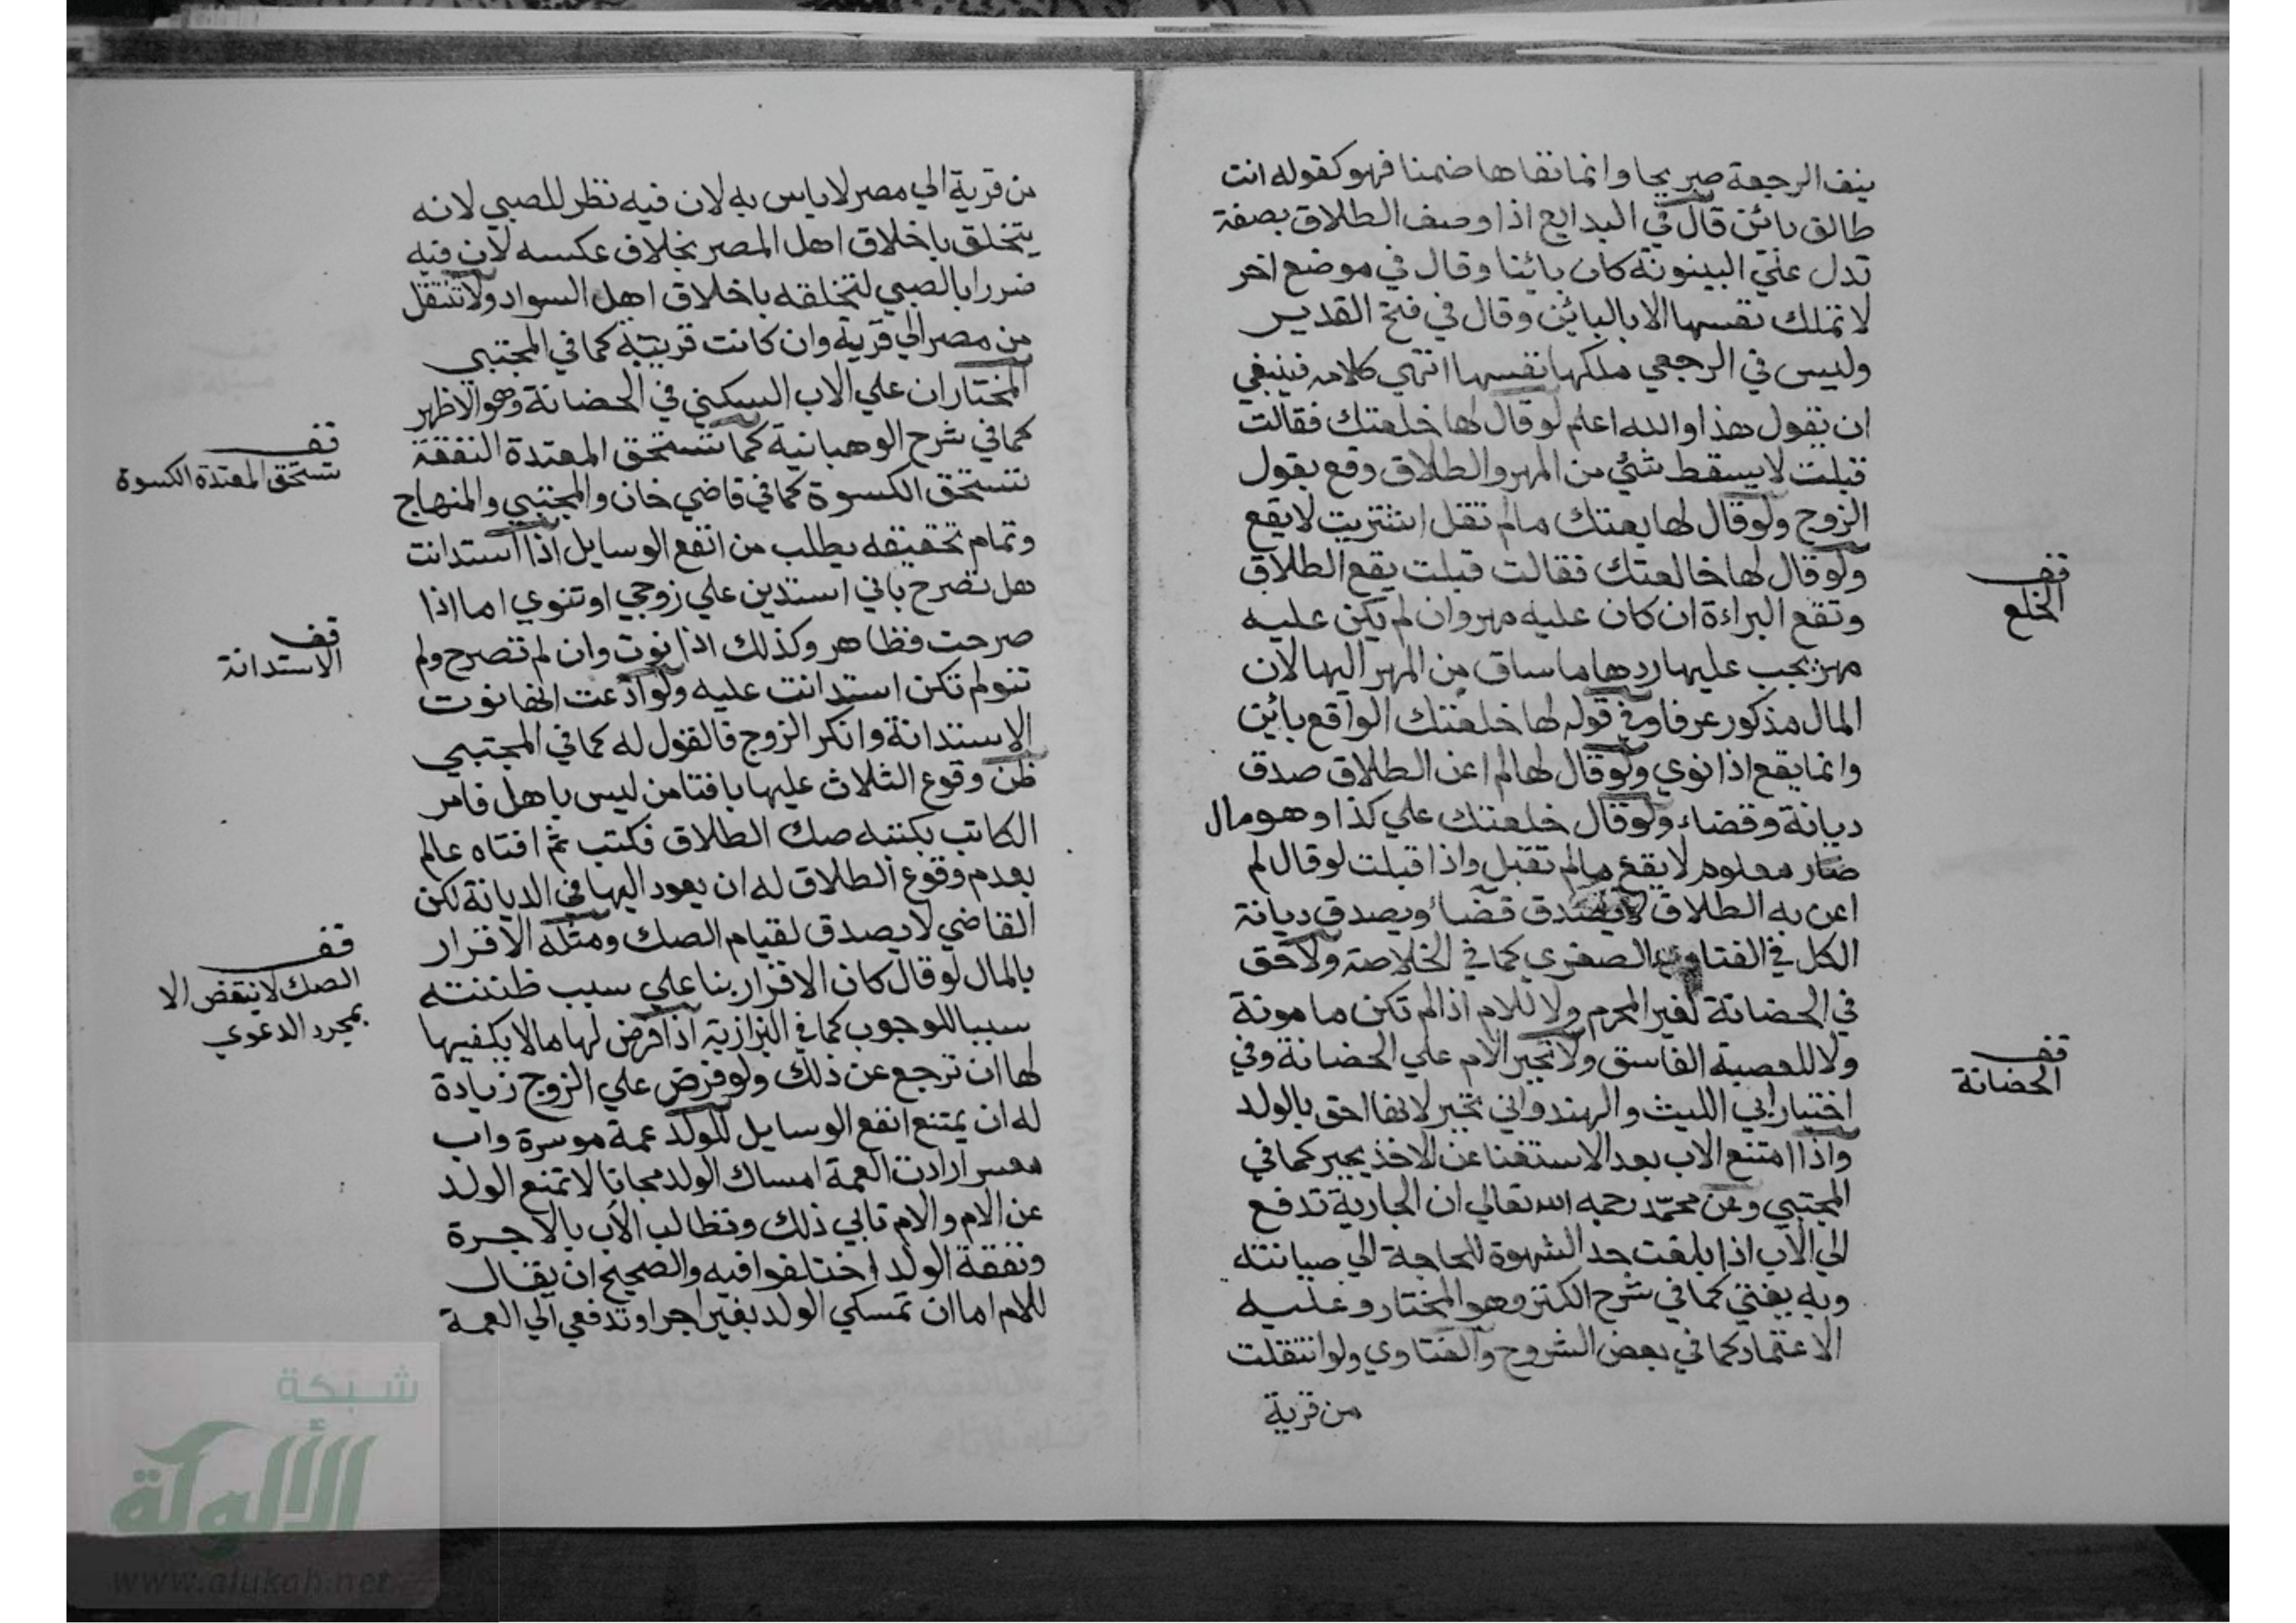 ينف الرجعة صريحا وانما نفاها ضمنا فهو كقوله انت
طالق بائن قال في البدايع اذا وصف الطلاق بصفة
تدل علي البينونة كان بائنا وقال في موضع اخر
لا تملك نفسها الا بالبائن وقال في فتح القدير
وليس في الرجعي ملكها نفسها انتهي كلامه فينبغي
ان يقول هذا والله اعلم لو قال لها خلعتك فقالت
قبلت لا يسقط شئي من المهر والطلاق وقع بقول
الزوج ولو قال لها بعتك مالم تقل اشتريت لا يقع
ولو قال لها خالعتك فقالت قبلت يقع الطلاق
وتقع البراءة ان كان عليه مهر وان لم يكن عليه
مهر يجب عليها ردها ما ساق من المهر اليها لان
المال مذكور عرفا وفي قوله لها خلعتك الواقع بائن
وانما يقع اذا نوي ولو قال لها لم اعن الطلاق صدق
ديانة وقضاء ولو قال خلعتك علي كذا وهو مال
صار معلوم لا يقع مالم تقبل واذا قبلت لو قال لم
اعن به الطلاق لا يصدق قضاء ويصدق ديانة
الكل في الفتاوي الصغري كما في الخلاصة ولا حق
في الحضانة لغير المحرم ولا للام اذا لم تكن مامونة
ولا للعصبة الفاسق ولا تجبر الام علي الحضانة وفي
اختيار ابي الليث والهندواني تجبر لانها احق بالولد
واذا امتنع الاب بعد الاستغنا عن الاخذ يجبر كما في
المجتبي وعن محمد رحمه الله تعالي ان الجارية تدفع
الي الاب اذا بلغت حد الشهوة للحاجة الي صيانته
وبه يفتي كما في شرح الكنز وهو المختار وعليه
الاعتماد كما في بعض الشروح والفتاوي ولو انتقلت
من قرية
قف
الخلع
قف
الحضانة
من قرية الي مصر لا باس به لان فيه نظر للصبي لانه
يتخلق باخلاق اهل المصر بخلاف عكسه لان فيه
ضررا بالصبي لتخلقه باخلاق اهل السواد ولا تنتقل
من مصر الي قرية وان كانت قريبة كما في المجتبي
المختار ان علي الاب السكني في الحضانة وهو الاظهر
كما في شرح الوهبانية كما تستحق المعتدة النفقة
تستحق الكسوة كما في قاضي خان والمجتبي والمنهاج
وتمام تحقيقه يطلب من انفع الوسايل اذا استدانت
هل تصرح باني استدين علي زوجي او تنوي اما اذا
صرحت فظاهر وكذلك اذا نوت وان لم تصرح ولم
تنو لم تكن استدانت عليه ولو ادعت انها نوت
الاستدانة وانكر الزوج فالقول له كما في المجتبي
ظن وقوع الثلاث عليها بافتا من ليس باهل فامر
الكاتب بكتبه صك الطلاق فكتب ثم افتاه عالم
بعدم وقوع الطلاق له ان يعود اليها في الديانة لكن
القاضي لا يصدق لقيام الصك ومثله الاقرار
بالمال لو قال كان الاقرار بنا علي سبب ظننته
سببا للوجوب كما في البزازية اذا فرض لها ما لا يكفيها
لها ان ترجع عن ذلك ولو فرض علي الزوج زيادة
له ان يمتنع انفع الوسايل للولد عمة موسرة واب
معسر ارادت العمة امساك الولد مجانا لا تمنع الولد
عن الام والام تابي ذلك وتطالب الاب بالاجرة
ونفقة الولد اختلفوا فيه والصحيح ان يقال
للام اما ان تمسكي الولد بغير اجر او تدفعي الي العمة
قف
تستحق المعتدة الكسوة
قف
الاستدانة
قف
الصك لا ينتقض الا
بمجرد الدعوي
شبكة
الألوكة
www.alukah.net